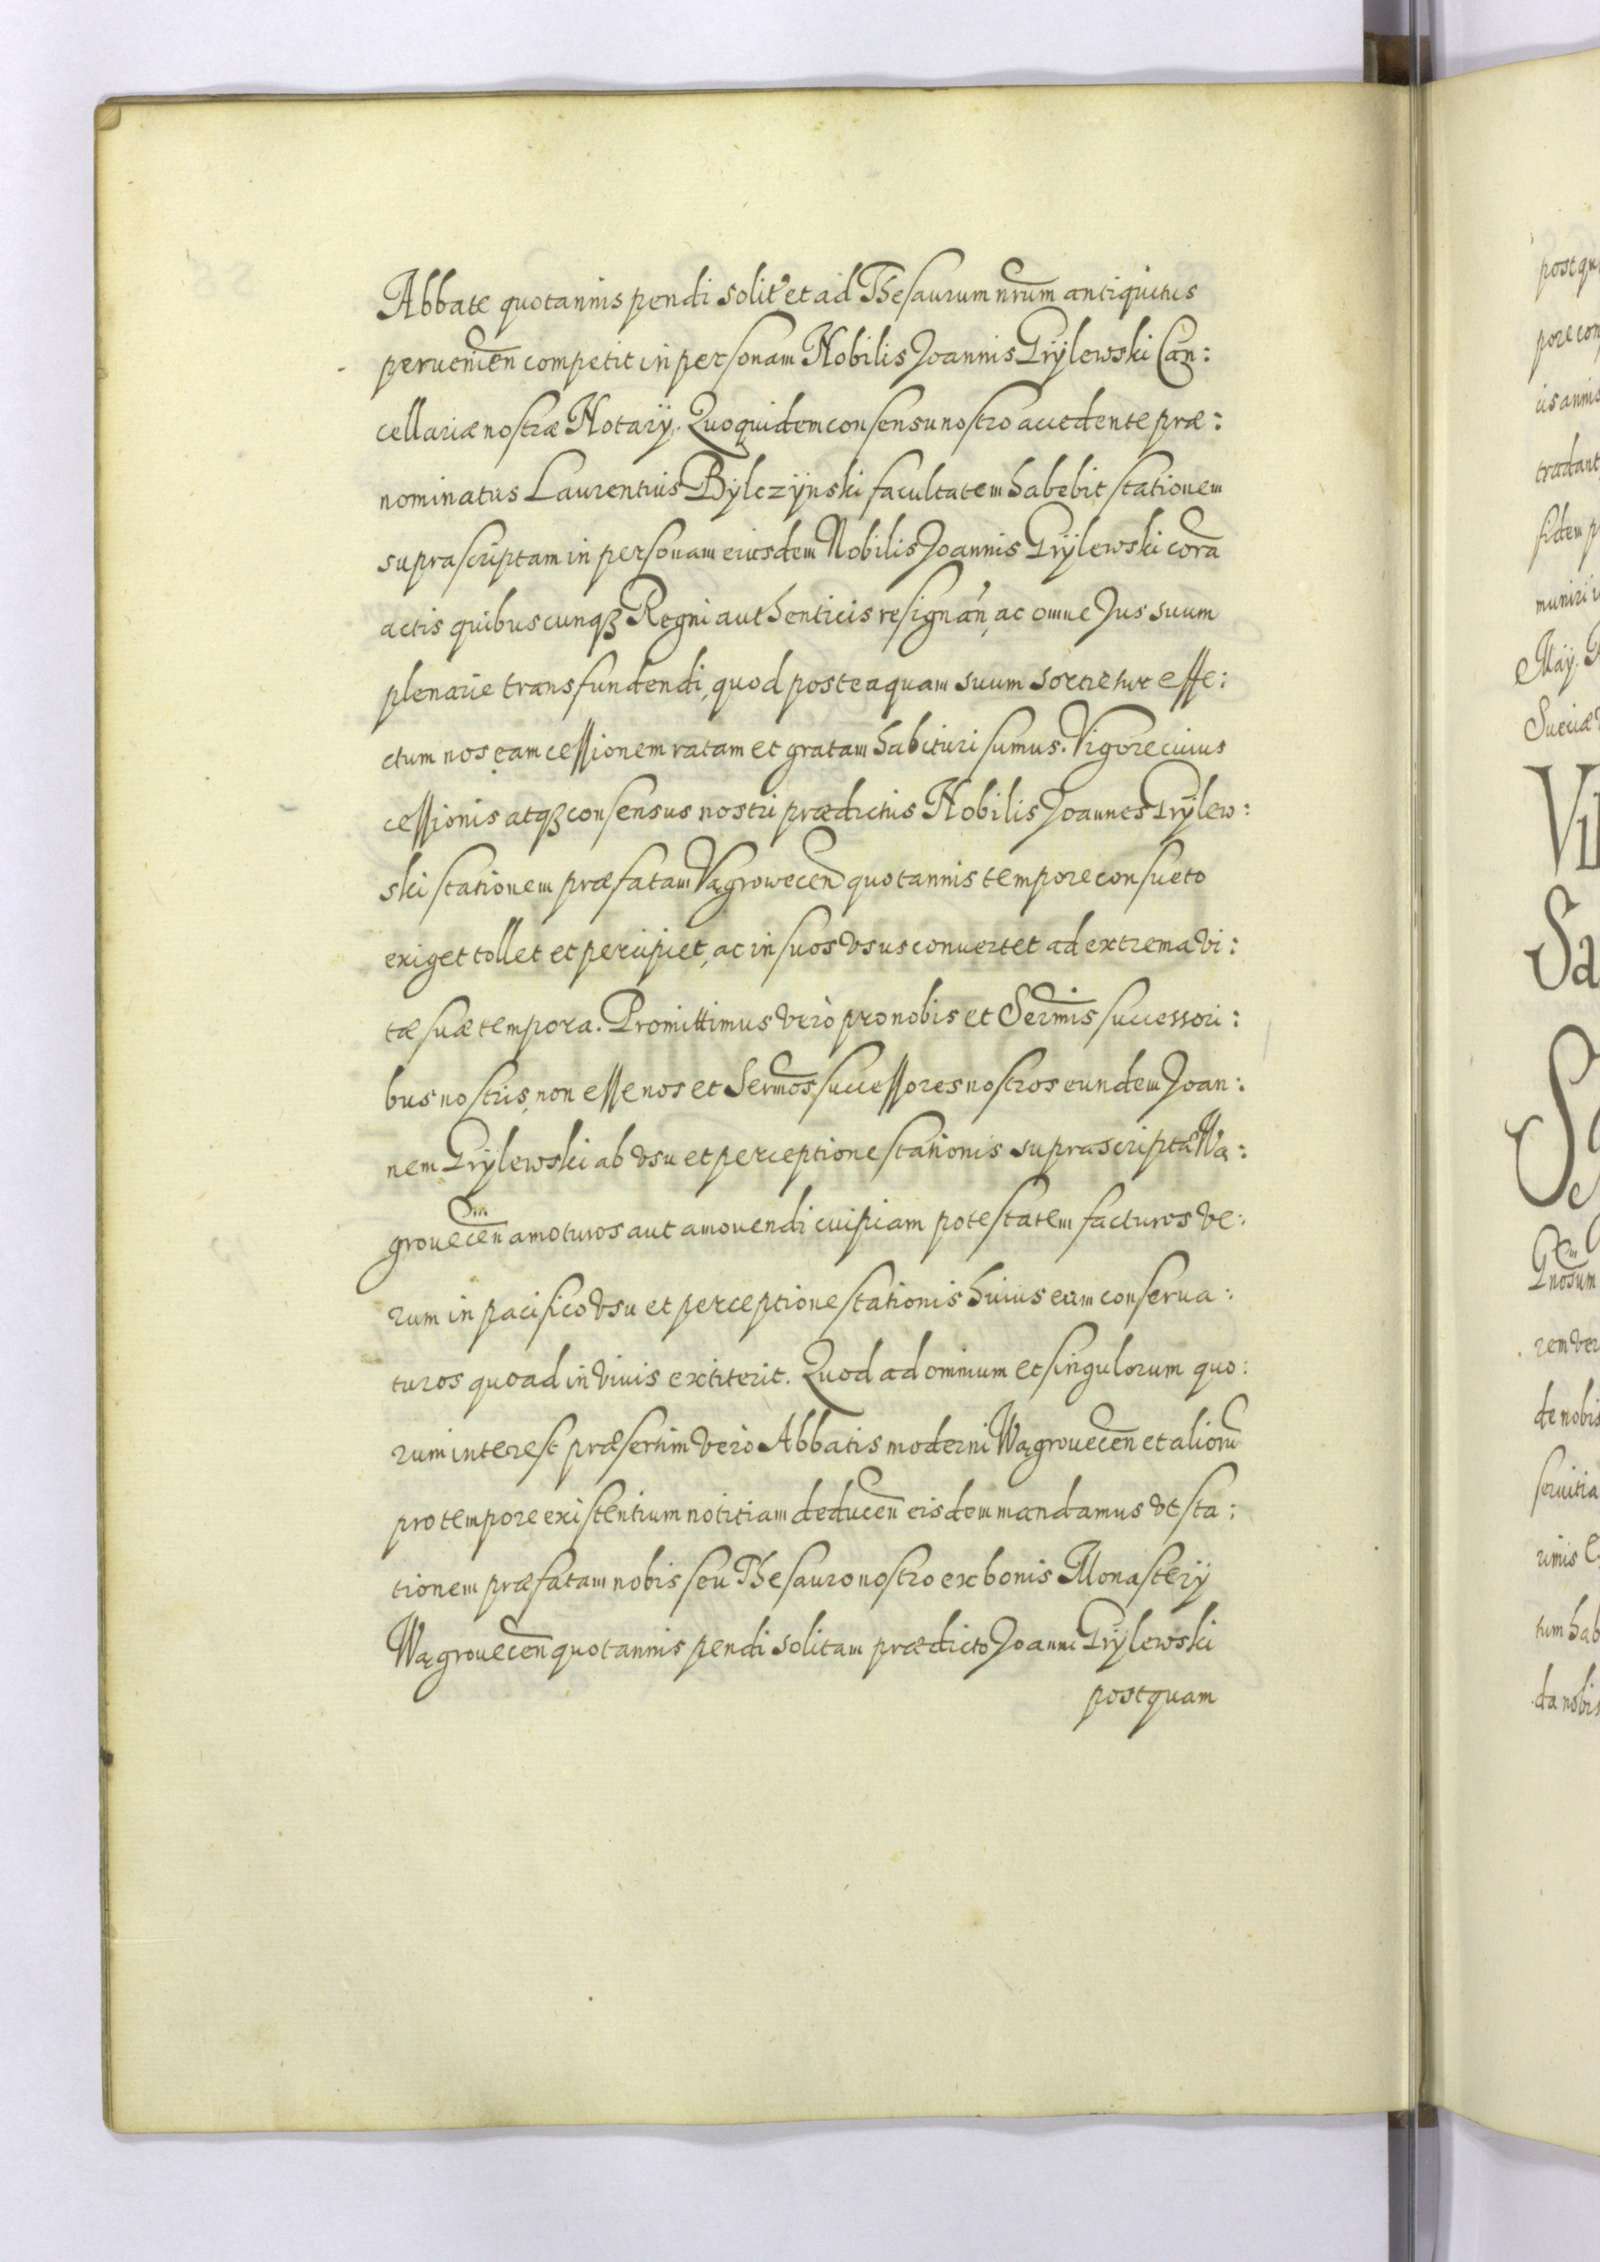 Abbate quotannis pendi solit et ad Thesaurum nrum antiquitus
pervenien competit in personam Nobilis Joannis Grÿlewski Can:
cellariæ nostræ Notarÿ. Quo quidem consensu nostro accedente præ:
nominatus Laurentius Bÿlczÿnski facultatem habebit stationem
suprascriptam in personam eiusdem Nobilis Joannis Grÿlewski corã
actis quibuscunqꝫ Regni authenticis resignãn, ac omne Jus suum
plenarie transfundendi, quod posteaquam suum sortietur effe:
ctum nos eam cessionem ratam et gratam habituri sumus. Vigore cuius
cessionis atqꝫ consensus nostri prædictus Nobilis Joannes Grÿlew:
ski stationem præfatam Vągrowecen quotannis tempore consueto
exiget tollet et percipiet, ac in suos vsus convertet ad extrema vi:
tæ suæ tempora. Promittimus verò pro nobis et Sermis successori:
bus nostris, non esse nos et Sermos successores nostros eundem Joan:
nem Grÿlewski ab vsu et perceptione stationis suprascriptæ Wą:
grouecen amoturos aut amouendi cuipiam potestatem facturos ve:
rum in pacifico vsu et perceptione stationis huius eum conserua:
turos quoad in viuis extiterit. Quod ad omnium et singulorum quo:
rum interest præsertim verò Abbatis moderni Wągrouecen et aliorũ
pro tempore existentium notitiam deducen eisdem mandamus vt sta:
tionem præfatam nobis seu Thesauro nostro ex bonis Monasterÿ
Wągrouecen quotannis pendi solitam prædicto Joanni Grÿlewski
postquam
postqu
pore con
cis annis
tradant
fidem p
muniri
Maÿ.
Sueciæ
Vl
Sa
Gnosum
rem ver
de nobis
seruitia
rimis
tum hab
da nobis